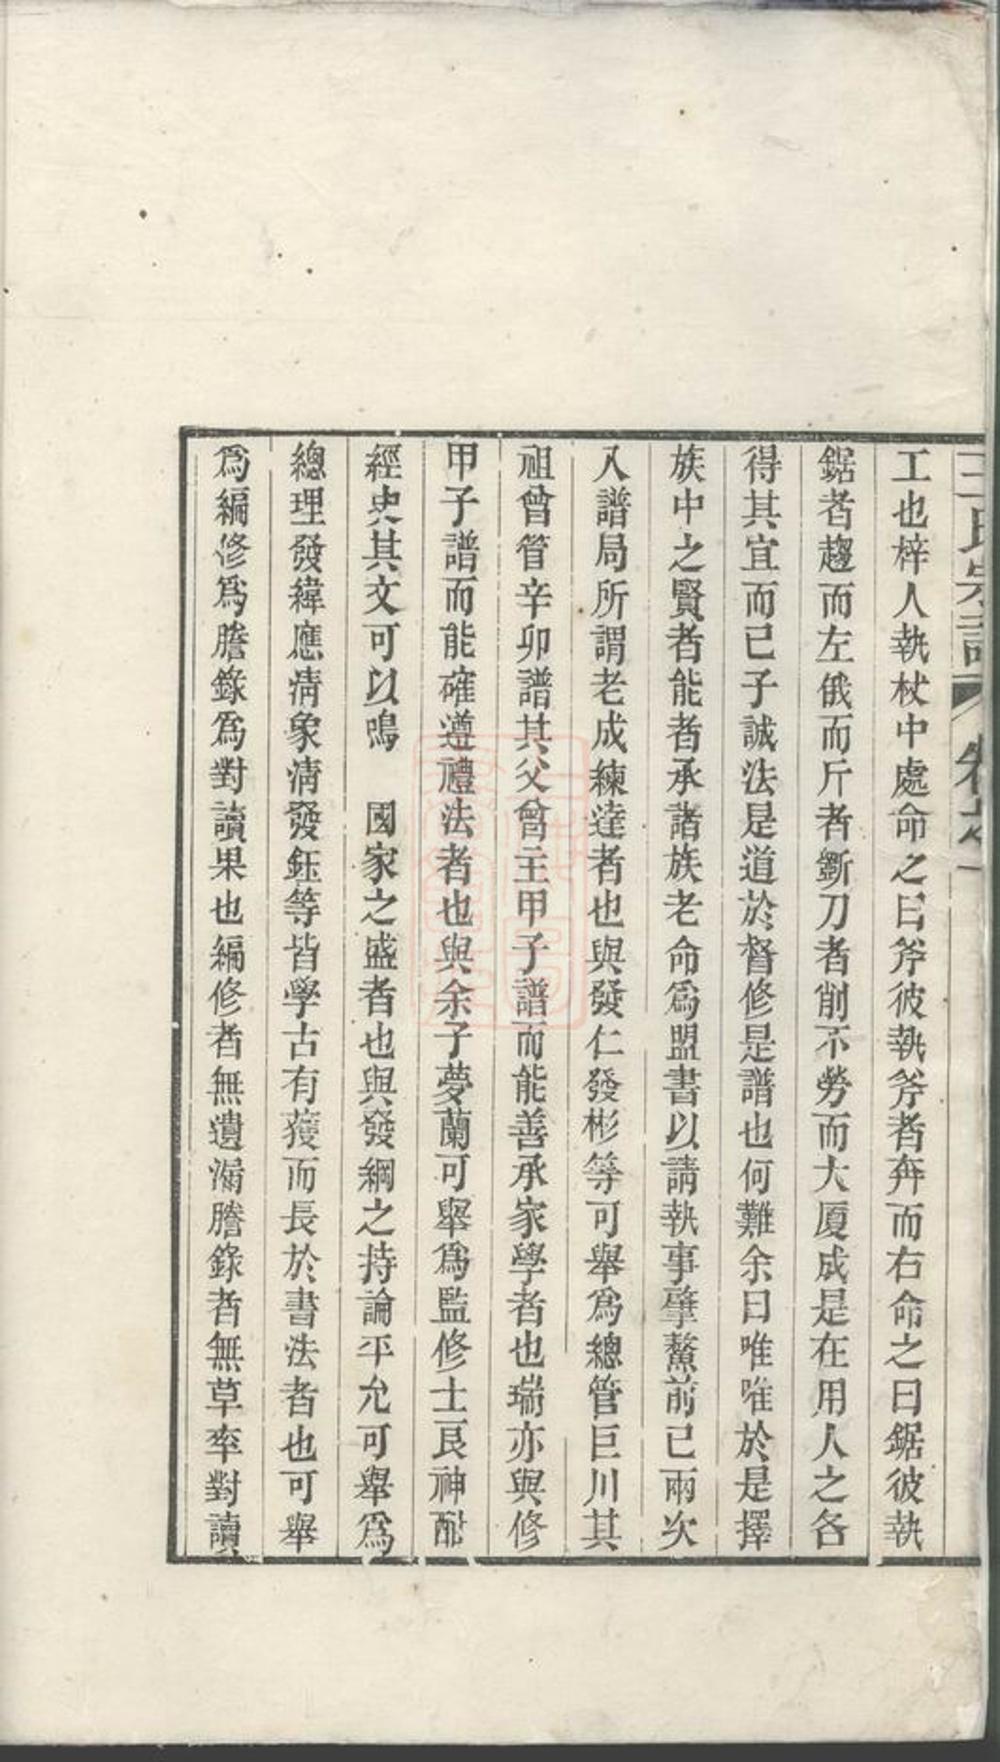 王氏宗譜 卷之一
工也梓人執杖中處命之曰斧彼執斧者奔而右命之曰鋸彼執
鋸者趨而左俄而斤者斵刀者削不勞而大厦成是在用人之各
得其宜而已子誠法是道於督修是譜也何難余曰唯唯於是擇
族中之賢者能者承諸族老命爲盟書以請執事肇鰲前已兩次
入譜局所謂老成練達者也與發仁發彬等可舉爲總管巨川其
祖曾管辛卯譜其父曾主甲子譜而能善承家學者也瑞亦與修
甲子譜而能確遵禮法者也與余子夢蘭可舉爲監修士艮神酣
經史其文可以鳴　國家之盛者也與發綱之持論平允可舉爲
總理發緯應淸象淸發鈺等皆學古有獲而長於書法者也可舉
爲編修爲謄錄爲對讀果也編修者無遺漏謄錄者無草率對讀